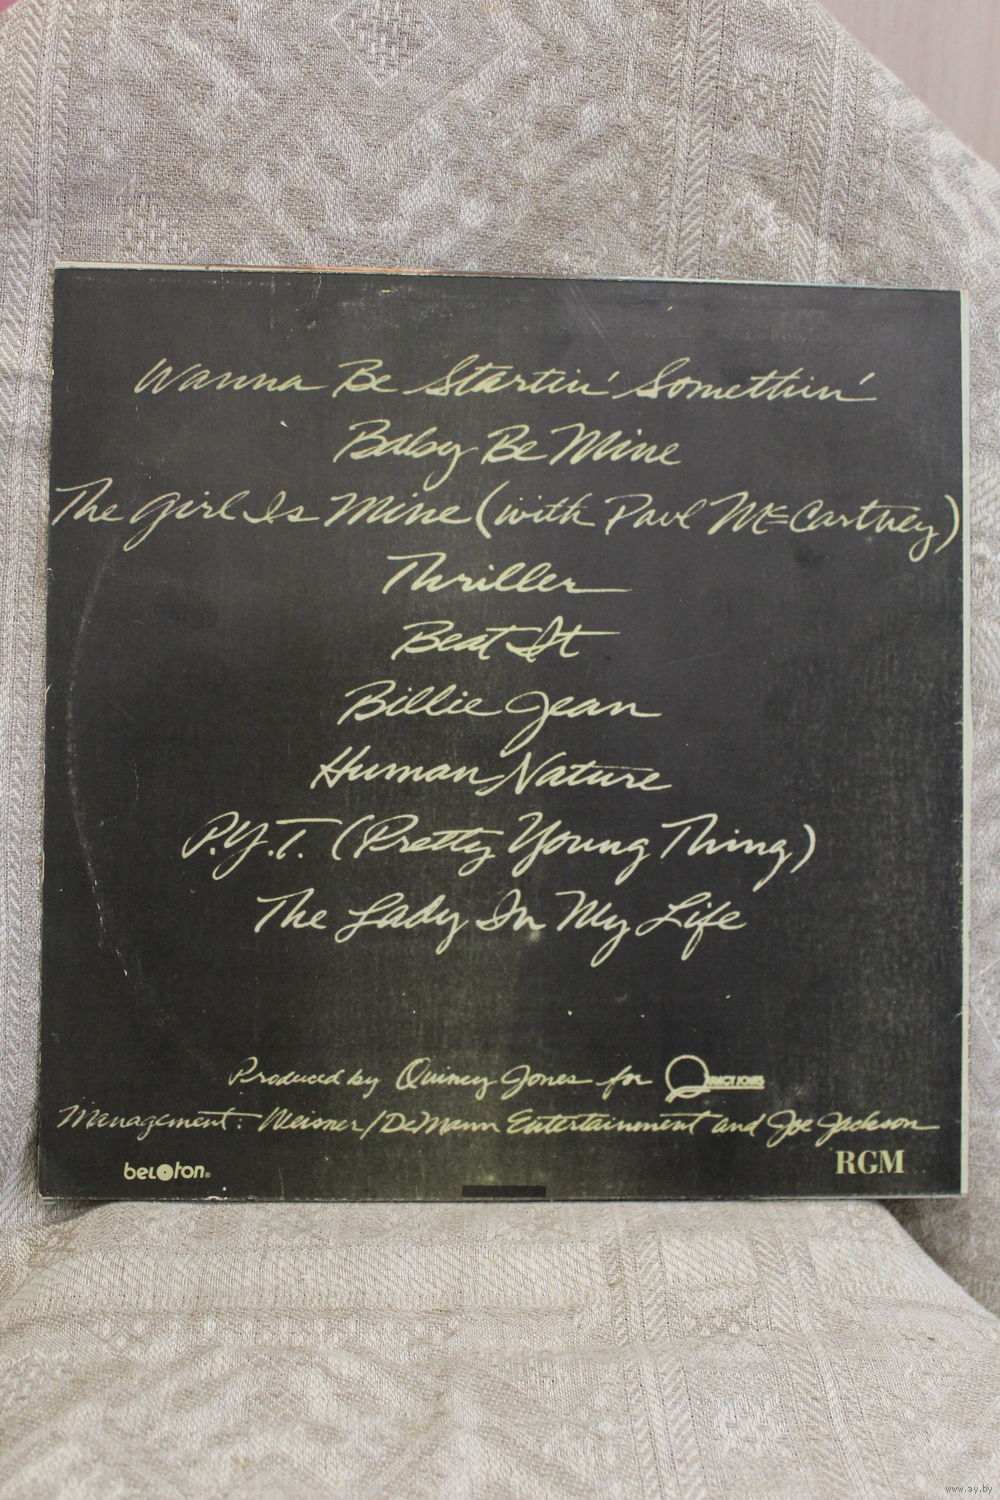 Wanna Be Startin' Somethin'
Baby Be Mine
The Girl Is Mine (with Paul McCartney)
Thriller
Beat It
Billie Jean
Human Nature
P.Y.T. (Pretty Young Thing)
The Lady In My Life
Produced by Quincy Jones for QUINCY JONES
Management: Weisner/DeMann Entertainment and Joe Jackson
beloton®
RGM
www.ay.by